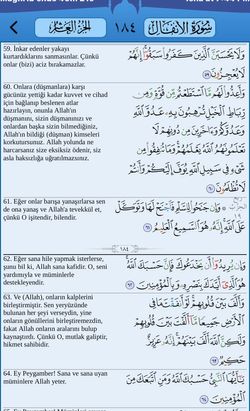 الجزء العاشر
١٨٤
سورة الأنفال
59. İnkar edenler yakayı
kurtardıklarını sanmasınlar. Çünkü
onlar (bizi) aciz bırakamazlar.
وَلَا يَحْسَبَنَّ الَّذِينَ كَفَرُوا سَبَقُوا إِنَّهُمْ
لَا يُعْجِزُونَ ٥٩
60. Onlara (düşmanlara) karşı
gücünüz yettiği kadar kuvvet ve cihad
için bağlanıp beslenen atlar
hazırlayın, onunla Allah'ın
düşmanını, sizin düşmanınızı ve
onlardan başka sizin bilmediğiniz,
Allah'ın bildiği (düşman) kimseleri
korkutursunuz. Allah yolunda ne
harcarsanız size eksiksiz ödenir, siz
asla haksızlığa uğratılmazsınız.
وَأَعِدُّوا لَهُمْ مَا اسْتَطَعْتُمْ مِنْ قُوَّةٍ وَمِنْ
رِبَاطِ الْخَيْلِ تُرْهِبُونَ بِهِ عَدُوَّ اللَّهِ
وَعَدُوَّكُمْ وَآخَرِينَ مِنْ دُونِهِمْ لَا
تَعْلَمُونَهُمُ اللَّهُ يَعْلَمُهُمْ وَمَا تُنْفِقُوا مِنْ
شَيْءٍ فِي سَبِيلِ اللَّهِ يُوَفَّ إِلَيْكُمْ وَأَنْتُمْ
لَا تُظْلَمُونَ ٦٠
61. Eğer onlar barışa yanaşırlarsa sen
de ona yanaş ve Allah'a tevekkül et,
çünkü O işitendir, bilendir.
وَإِنْ جَنَحُوا لِلسَّلْمِ فَاجْنَحْ لَهَا وَتَوَكَّلْ
عَلَى اللَّهِ إِنَّهُ هُوَ السَّمِيعُ الْعَلِيمُ ٦١
١٨٤
62. Eğer sana hile yapmak isterlerse,
şunu bil ki, Allah sana kafidir. O, seni
yardımıyla ve müminlerle
destekleyendir.
وَإِنْ يُرِيدُوا أَنْ يَخْدَعُوكَ فَإِنَّ حَسْبَكَ اللَّهُ
هُوَ الَّذِي أَيَّدَكَ بِنَصْرِهِ وَبِالْمُؤْمِنِينَ ٦٢
63. Ve (Allah), onların kalplerini
birleştirmiştir. Sen yeryüzünde
bulunan her şeyi verseydin, yine
onların gönüllerini birleştiremezdin,
fakat Allah onların aralarını bulup
kaynaştırdı. Çünkü O, mutlak galiptir,
hikmet sahibidir.
وَأَلَّفَ بَيْنَ قُلُوبِهِمْ لَوْ أَنْفَقْتَ مَا فِي
الْأَرْضِ جَمِيعًا مَا أَلَّفْتَ بَيْنَ قُلُوبِهِمْ
وَلَكِنَّ اللَّهَ أَلَّفَ بَيْنَهُمْ إِنَّهُ عَزِيزٌ
حَكِيمٌ ٦٣
64. Ey Peygamber! Sana ve sana uyan
müminlere Allah yeter.
يَا أَيُّهَا النَّبِيُّ حَسْبُكَ اللَّهُ وَمَنِ اتَّبَعَكَ مِنَ
الْمُؤْمِنِينَ ٦٤